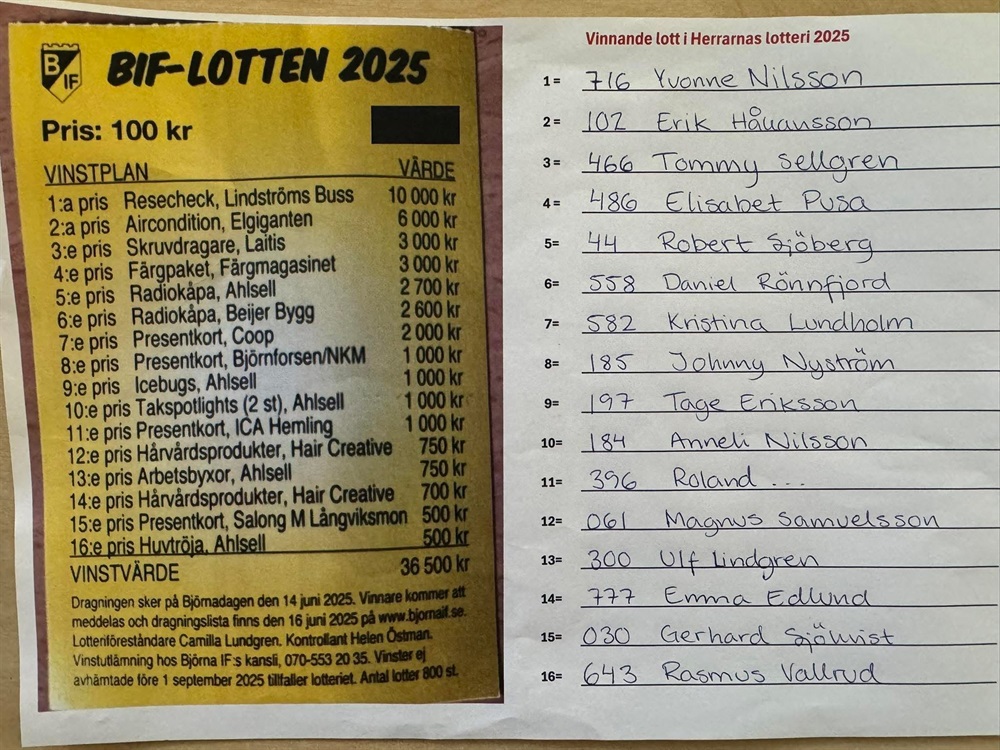 BIF
BIF-LOTTEN 2025
Pris: 100 kr
VINSTPLAN VÄRDE
1:a pris Resecheck, Lindströms Buss 10 000 kr
2:a pris Aircondition, Elgiganten 6 000 kr
3:e pris Skruvdragare, Laitis 3 000 kr
4:e pris Färgpaket, Färgmagasinet 3 000 kr
5:e pris Radiokåpa, Ahlsell 2 700 kr
6:e pris Radiokåpa, Beijer Bygg 2 600 kr
7:e pris Presentkort, Coop 2 000 kr
8:e pris Presentkort, Björnforsen/NKM 1 000 kr
9:e pris Icebugs, Ahlsell 1 000 kr
10:e pris Takspotlights (2 st), Ahlsell 1 000 kr
11:e pris Presentkort, ICA Hemling 1 000 kr
12:e pris Hårvårdsprodukter, Hair Creative 750 kr
13:e pris Arbetsbyxor, Ahlsell 750 kr
14:e pris Hårvårdsprodukter, Hair Creative 700 kr
15:e pris Presentkort, Salong M Långviksmon 500 kr
16:e pris Huvtröja, Ahlsell 500 kr
VINSTVÄRDE 36 500 kr
Dragningen sker på Björnadagen den 14 juni 2025. Vinnare kommer att
meddelas och dragningslista finns den 16 juni 2025 på www.bjornaif.se.
Lotteriföreståndare Camilla Lundgren. Kontrollant Helen Östman.
Vinstutlämning hos Björna IF:s kansli, 070-553 20 35. Vinster ej
avhämtade före 1 september 2025 tillfaller lotteriet. Antal lotter 800 st.
Vinnande lott i Herrarnas lotteri 2025
1= 716 Yvonne Nilsson
2= 102 Erik Håkansson
3= 466 Tommy Sellgren
4= 486 Elisabet Pusa
5= 44 Robert Sjöberg
6= 558 Daniel Rönnfjord
7= 582 Kristina Lundholm
8= 185 Johnny Nyström
9= 197 Tage Eriksson
10= 184 Anneli Nilsson
11= 396 Roland ...
12= 061 Magnus Samuelsson
13= 300 Ulf Lindgren
14= 777 Emma Edlund
15= 030 Gerhard Sjökvist
16= 643 Rasmus Vallrud